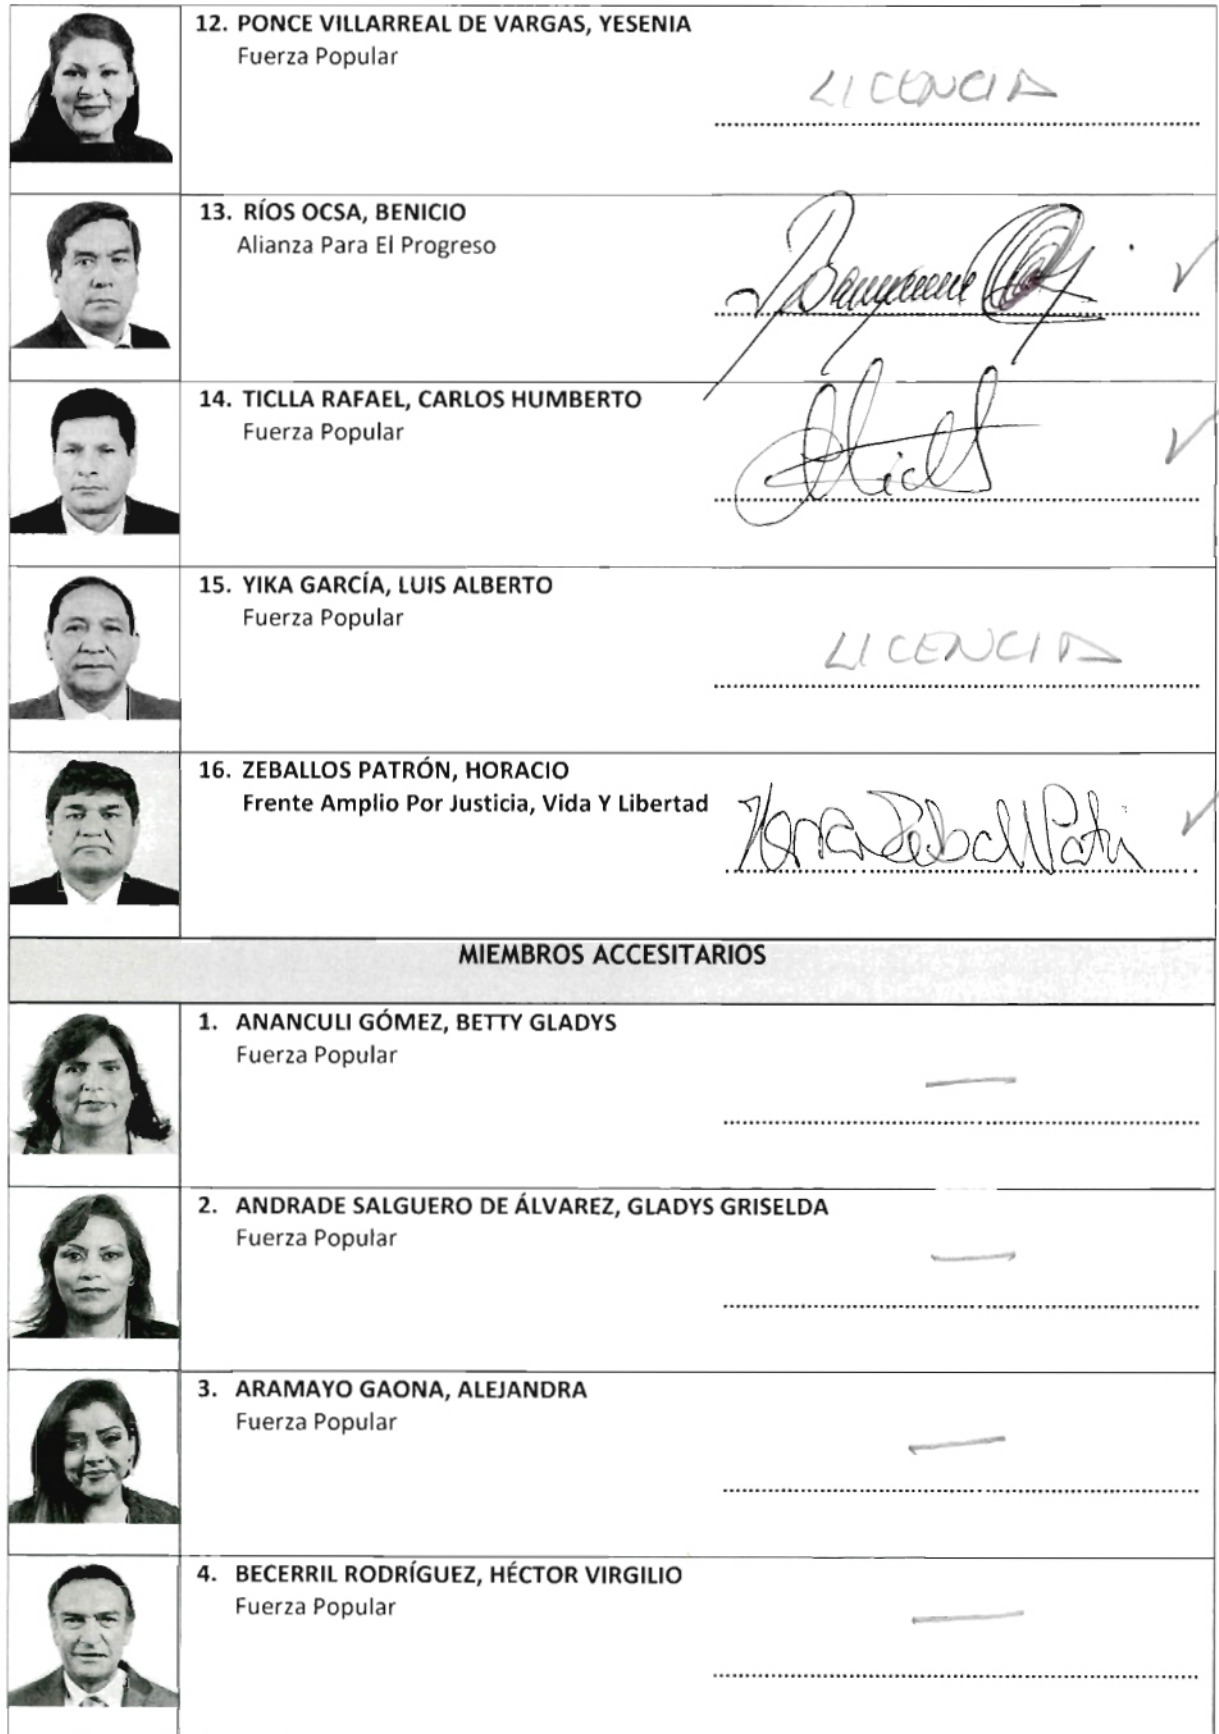 12. PONCE VILLARREAL DE VARGAS, YESENIA
Fuerza Popular
LICENCIA
13. RÍOS OCSA, BENICIO
Alianza Para El Progreso
14. TICLLA RAFAEL, CARLOS HUMBERTO
Fuerza Popular
15. YIKA GARCÍA, LUIS ALBERTO
Fuerza Popular
LICENCIA
16. ZEBALLOS PATRÓN, HORACIO
Frente Amplio Por Justicia, Vida Y Libertad
MIEMBROS ACCESITARIOS
1. ANANCULI GÓMEZ, BETTY GLADYS
Fuerza Popular
2. ANDRADE SALGUERO DE ÁLVAREZ, GLADYS GRISELDA
Fuerza Popular
3. ARAMAYO GAONA, ALEJANDRA
Fuerza Popular
4. BECERRIL RODRÍGUEZ, HÉCTOR VIRGILIO
Fuerza Popular